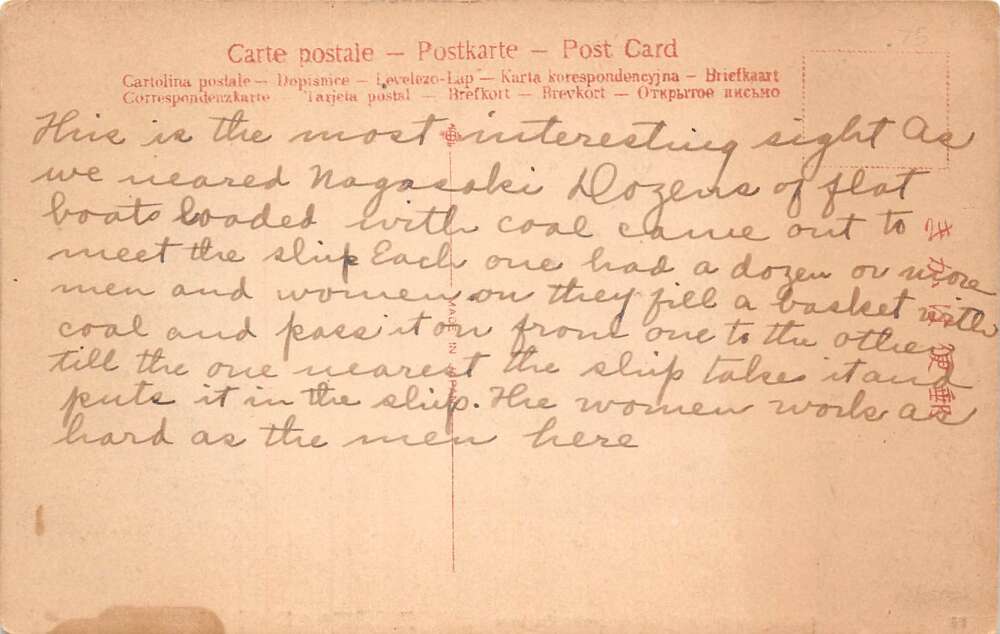 75
Carte postale — Postkarte — Post Card
Cartolina postale — Dopisnice — Levelezo-Lap — Karta korespondencyjna — Briefkaart
Correspondenzkarte — Tarjeta postal — Brefkort — Brevkort — Открытое письмо
This is the most interesting sight As
we neared Nagasaki Dozens of flat
boats loaded with coal came out to
meet the ship Each one had a dozen or more
men and women on they fill a basket with
coal and pass it on from one to the other
till the one nearest the ship takes it and
puts it in the ship. The women work as
hard as the men here
MADE IN JAPAN